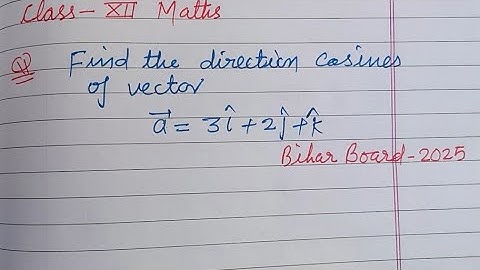 Class - XII Maths
Q Find the direction cosines
of vector
a⃗ = 3î + 2ĵ + k̂
Bihar Board - 2025